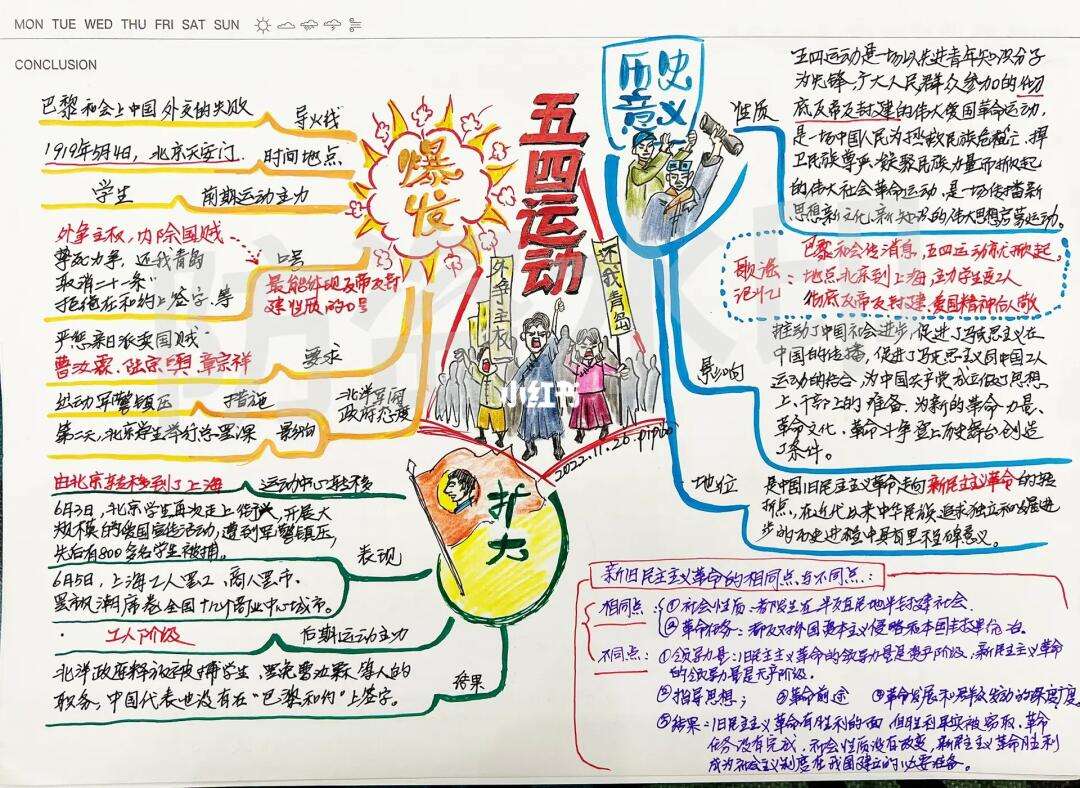 MON TUE WED THU FRI SAT SUN
CONCLUSION
五四运动
爆发
巴黎和会上中国外交的失败
导火线
1919年5月4日，北京天安门
时间地点
学生
前期运动主力
外争主权，内除国贼
誓死力争，还我青岛
取消"二十一条"
拒绝在和约上签字等
口号
最能体现反帝反封
建性质的口号
严惩亲日派卖国贼
曹汝霖、陆宗舆、章宗祥
要求
出动军警镇压
措施
第二天，北京学生举行总罢课
影响
北洋军阀
政府态度
外争主权
还我青岛
小红书
2022.11.26.
扩大
由北京转移到了上海
运动中心转移
6月3日，北京学生再次走上街头，开展大
规模的爱国宣传活动，遭到军警镇压，
先后有800多名学生被捕。
表现
6月5日，上海工人罢工、商人罢市、
罢市风潮席卷全国
工人阶级
后期运动主力
北洋政府释放被捕学生，罢免曹汝霖等人的
职务，中国代表也没有在"巴黎和约"上签字。
结果
历史
意义
性质
五四运动是一场以先进青年知识分子
为先锋、广大人民群众参加的彻
底反帝反封建的伟大爱国革命运动，
是一场中国人民为拯救民族危亡、捍
卫民族尊严、凝聚民族力量而掀起
的伟大社会革命运动，是一场传播新
思想新文化新知识的伟大思想启蒙运动。
歌谣
记忆：
巴黎和会传消息，五四运动就掀起，
地点北京到上海，主力学生变工人
彻底反帝反封建，爱国精神后人敬
影响
推动了中国社会进步，促进了马克思主义在
中国的传播，促进了马克思主义同中国工人
运动的结合，为中国共产党成立做了思想
上、干部上的准备，为新的革命力量、
革命文化、革命斗争登上历史舞台创造
了条件。
地位
是中国旧民主主义革命走向新民主主义革命的转
折点，在近代以来中华民族追求独立和发展进
步的历史进程中具有里程碑意义。
新旧民主主义革命的相同点与不同点：
相同点：①社会性质：都发生在半殖民地半封建社会
②革命任务：都反对外国资本主义侵略和本国封建统治。
不同点：①领导力量：旧民主主义革命的领导力量是资产阶级，新民主主义革命
的领导力量是无产阶级。
②指导思想； ③革命前途 ④革命发展和群众发动的深度广度
⑤结果：旧民主主义革命有胜利的一面，但胜利果实被窃取，革命
任务没有完成，社会性质没有改变，新民主主义革命胜利
成为社会主义制度在我国建立的必要准备。